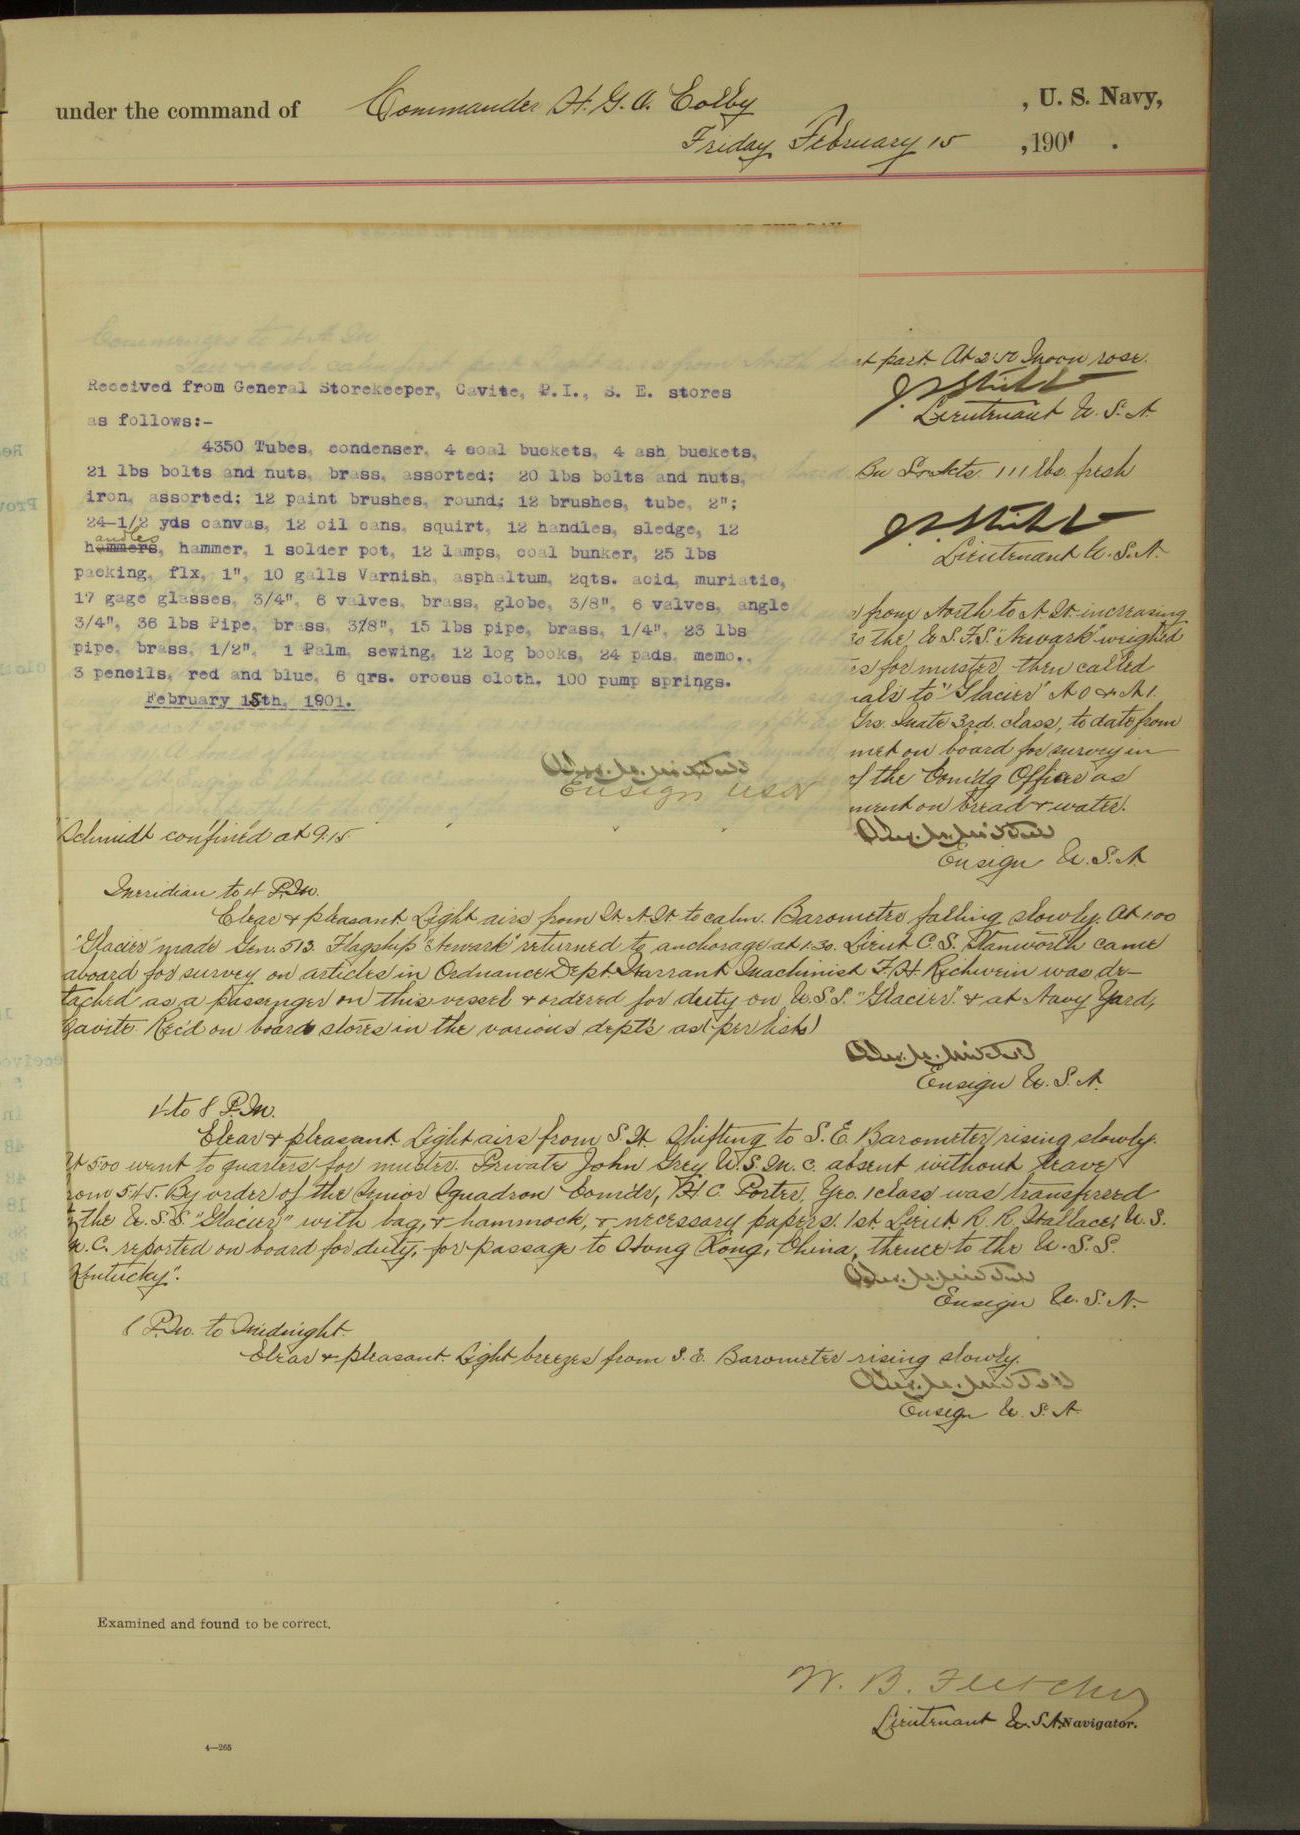 under the command of Commander H. G. O. Colby , U. S. Navy,
Friday February 15 , 1901 .
t part. At 2.50 Moon rose.
Lieutenant U. S. N.
Received from General Storekeeper, Cavite, P.I., S. E. stores
as follows:-
4350 Tubes, condenser, 4 coal buckets, 4 ash buckets,
21 lbs bolts and nuts, brass, assorted; 20 lbs bolts and nuts,
iron, assorted; 12 paint brushes, round; 12 brushes, tube, 2";
24-1/2 yds canvas, 12 oil cans, squirt, 12 handles, sledge, 12
handles, hammer, 1 solder pot, 12 lamps, coal bunker, 25 lbs
packing, flx, 1", 10 galls Varnish, asphaltum, 2qts. acid, muriatic,
17 gage glasses, 3/4", 6 valves, brass, globe, 3/8", 6 valves, angle
3/4", 36 lbs Pipe, brass, 3/8", 15 lbs pipe, brass, 1/4", 23 lbs
pipe, brass, 1/2", 1 Palm, sewing, 12 log books, 24 pads, memo.,
3 pencils, red and blue, 6 qrs. crocus cloth. 100 pump springs.
February 15th, 1901.
Ensign USN
111 lbs. fresh
Lieutenant U. S. N.
from North to N. W. increasing
the U. S. F. S. "Newark" weighed
es for muster, then called
nals to "Glacier" A 0 & A 1.
Mate 3rd. class, to date from
met on board for survey in
of the Com'd'g Officer as
ment on bread & water.
Ensign U. S. N.
Schmidt confined at 9.15
Meridian to 4 P.M.
Clear & pleasant Light airs from W. N. W. to calm. Barometer falling slowly. At 1.00
"Glacier" made Gen. 513. Flagship "Newark" returned to anchorage at 1.30. Lieut C. S. Stanworth came
aboard for survey on articles in Ordnance Dept. Warrant Machinist F. H. Richwein was de-
tached as a passenger on this vessel & ordered for duty on U. S. S. "Glacier" & at Navy Yard,
Cavite. Rec'd on board stores in the various dept's as (per lists)
Ensign U. S. N.
4 to 8 P.M.
Clear & pleasant Light airs from S. W. shifting to S. E. Barometer rising slowly.
At 5.00 went to quarters for muster. Private John Grey U. S. M. C. absent without leave
from 5.45. By order of the Senior Squadron Com'd'r, H. C. Porter, Yeo. 1 class was transferred
to the U. S. S. "Glacier" with bag, & hammock, & necessary papers. 1st. Lieut. R. R. Wallace, U. S.
M. C. reported on board for duty, for passage to Hong Kong, China, thence to the U. S. S.
Kentucky".
Ensign U. S. N.
8 P.M. to Midnight.
Clear & pleasant. Light breezes from S. E. Barometer rising slowly.
Ensign U. S. N.
Examined and found to be correct.
W. B. Fletcher
Lieutenant U. S. N. Navigator.
4—265